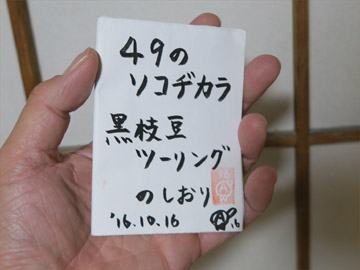 49の
ソコヂカラ
黒枝豆
ツーリング
のしおり
'16.10.16